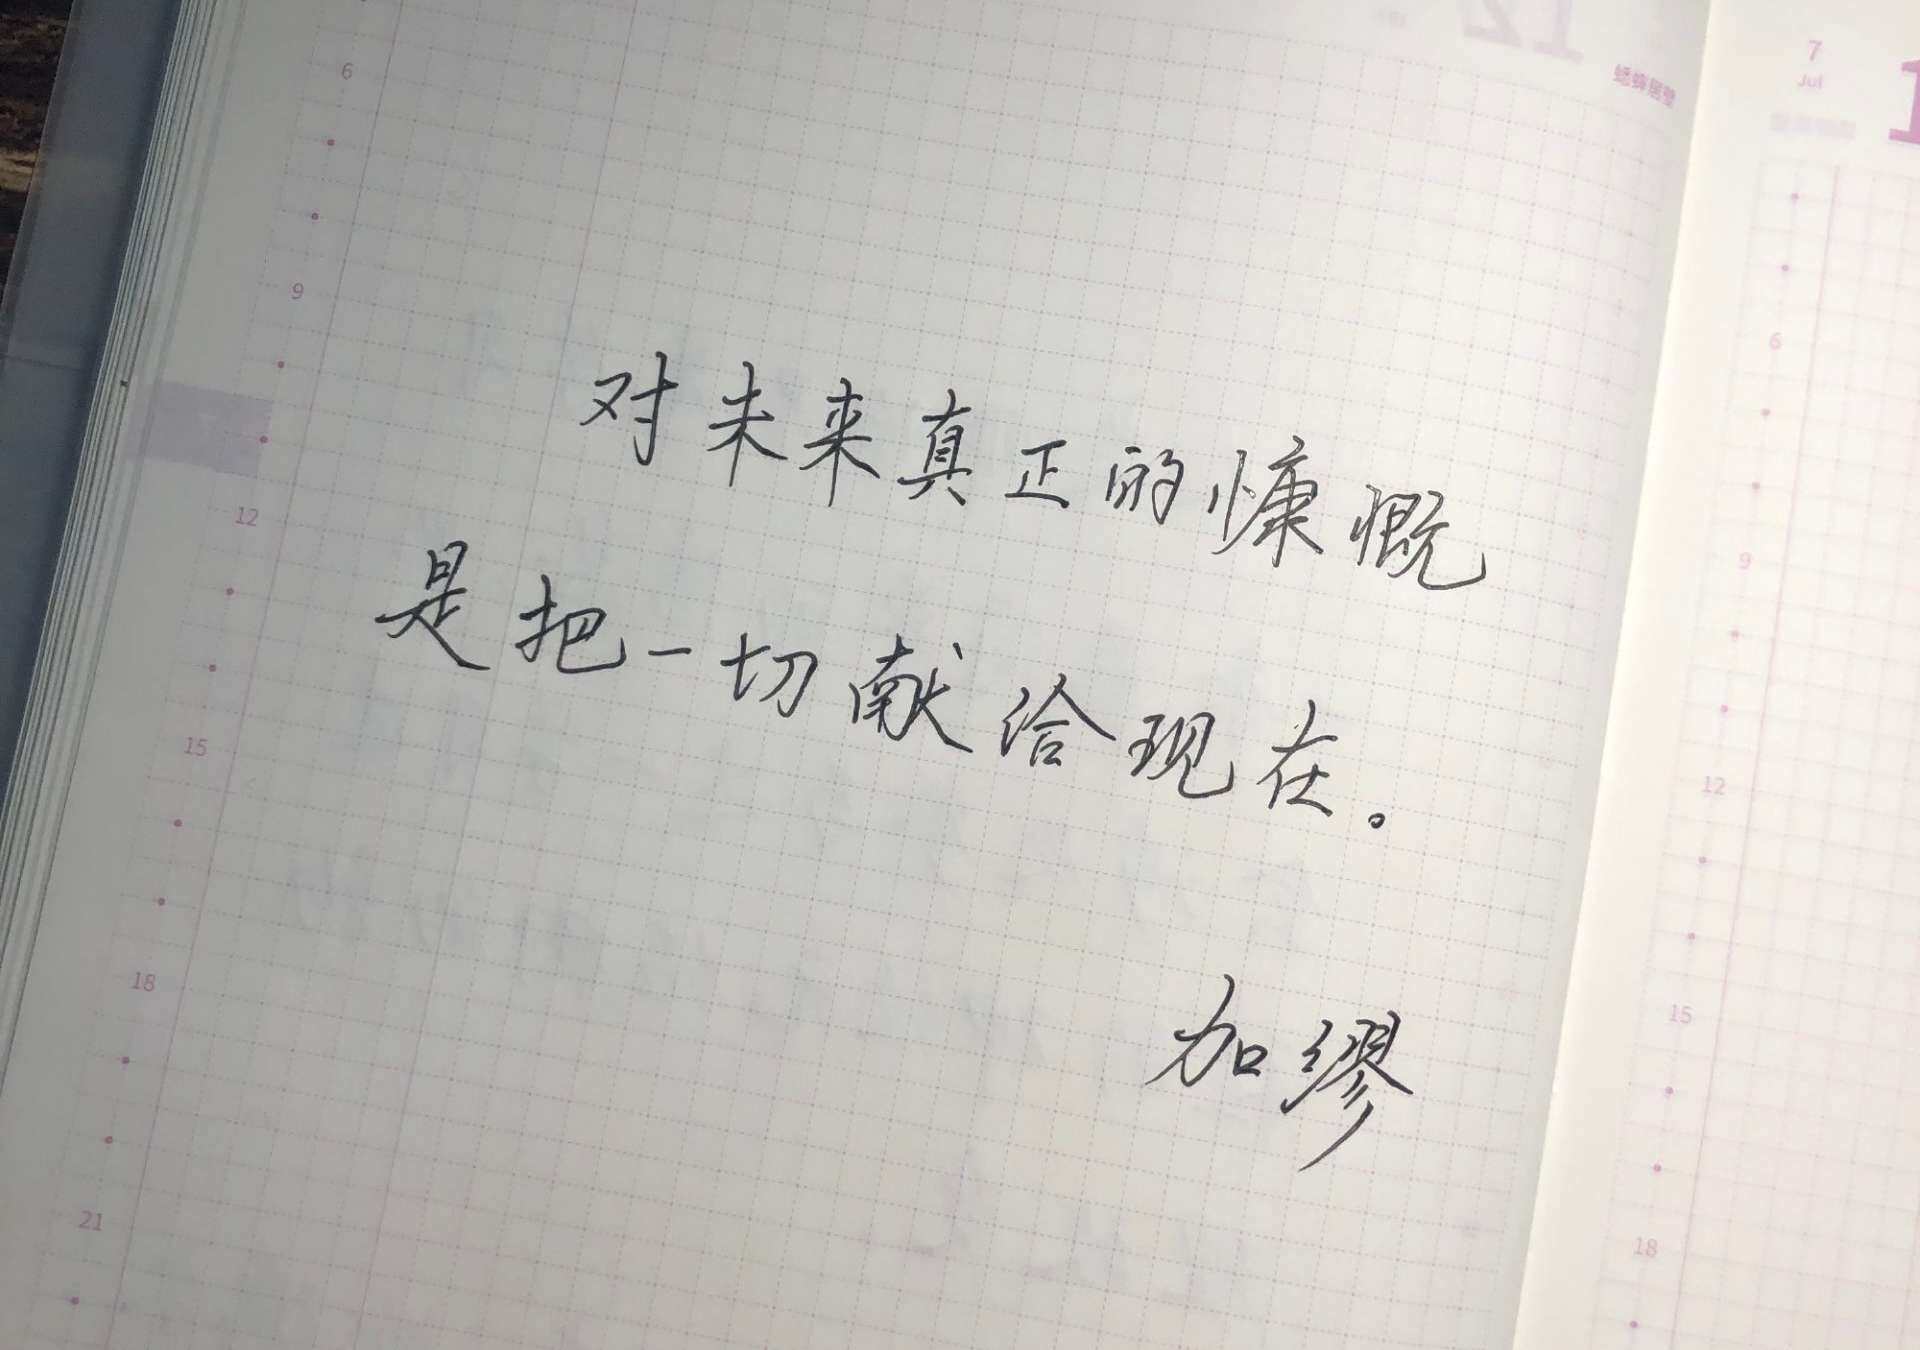 7
Jul
1
6
9
12
15
18
21
对未来真正的慷慨
是把一切献给现在。
加缪
6
9
12
15
18